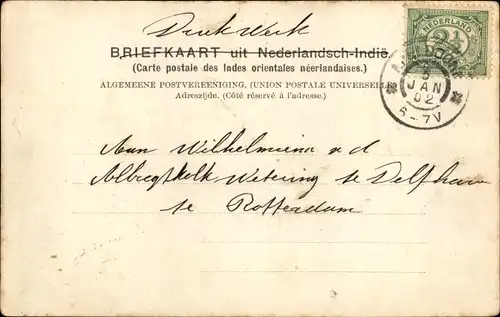 Druk Werk
BRIEFKAART uit Nederlandsch-Indië.
(Carte postale des Indes orientales néerlandaises.)
ALGEMEENE POSTVEREENIGING. (UNION POSTALE UNIVERSELLE
Adreszijde. (Côté réservé à l'adresse.)
NEDERLAND
2½
JAN
02
6-7V
Aan Wilhelmiena v d
Wetering te Delfshaven
te Rotterdam